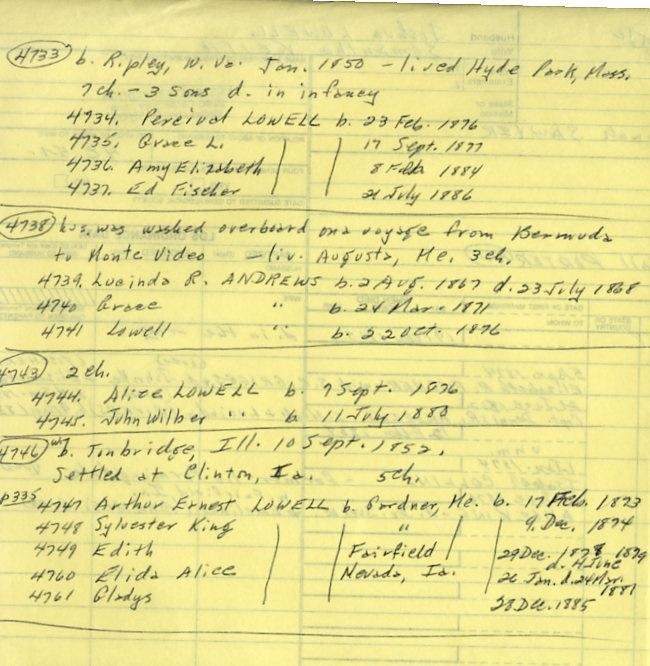 4733 b. Ripley, W. Va. Jan. 1850 - lived Hyde Park, Mass.
7 ch. - 3 sons d. in infancy
4734. Percival LOWELL b. 23 Feb. 1876
4735. Grace L. 17 Sept. 1877
4736. Amy Elizabeth 8 Feb 1884
4737. Ed Fischer 21 July 1886
4738 hus. was washed overboard on a voyage from Bermuda
to Monte Video - liv. Augusta, Me. 3 ch.
4739. Lucinda R. ANDREWS b. 2 Aug. 1867 d. 23 July 1868
4740 Grace " b. 24 Mar. 1871
4741 Lowell " b. 22 Oct. 1876
4743 2 ch.
4744. Alice LOWELL b. 7 Sept. 1876
4745. John Wilber " " b 11 July 1880
4746 b. Tonbridge, Ill. 10 Sept. 1852.
Settled at Clinton, Ia. 5 ch.
p335 4747 Arthur Ernest LOWELL b. Gardner, Me. b. 17 Feb. 1873
4748 Sylvester King " 9. Dec. 1874
4749 Edith Fairfield 29 Dec. 1878 1879
d. 4 June
4760 Elida Alice Nevada, Ia. 26 Jan. d. 24 Mar.
1881
4761 Gladys 28 Dec. 1885